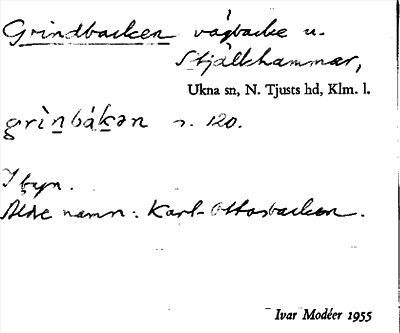 Grindbacken vägbacke u.
Stjälkhammar,
Ukna sn, N. Tjusts hd, Klm. l.
grìnbákən s. 120.
I byn.
Äldre namn: Karl-Ottosbacken.
Ivar Modéer 1955